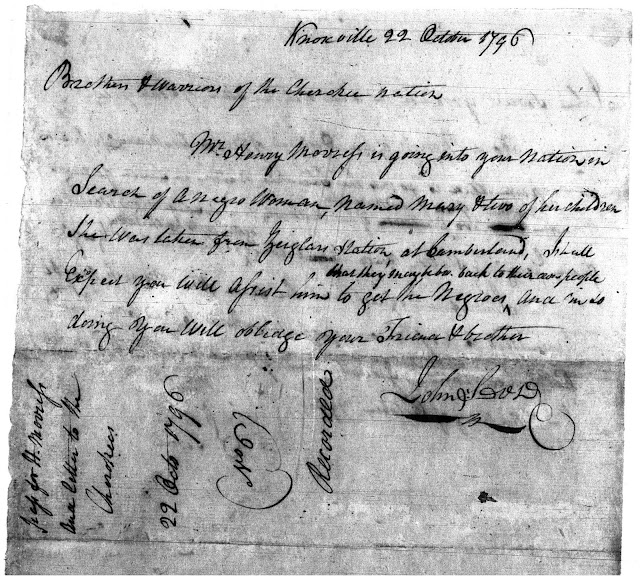 Knoxville 22 October 1796
Brothers & Warriors of the Cherokee Nation
Mr. Henry Morress is going into your Nation in
Search of a Negro Woman, Named Mary & two of her children
She Was taken from Zeiglars Station at Cumberland, I shall
that they may be back to their own people
Expect you Will Assist him to get the Negroes, ^ And in so
doing you Will obbidge your Friend & brother
John
H. Morress
letter to the
Cherokees
22 Octo 1796
No 6
Recorded